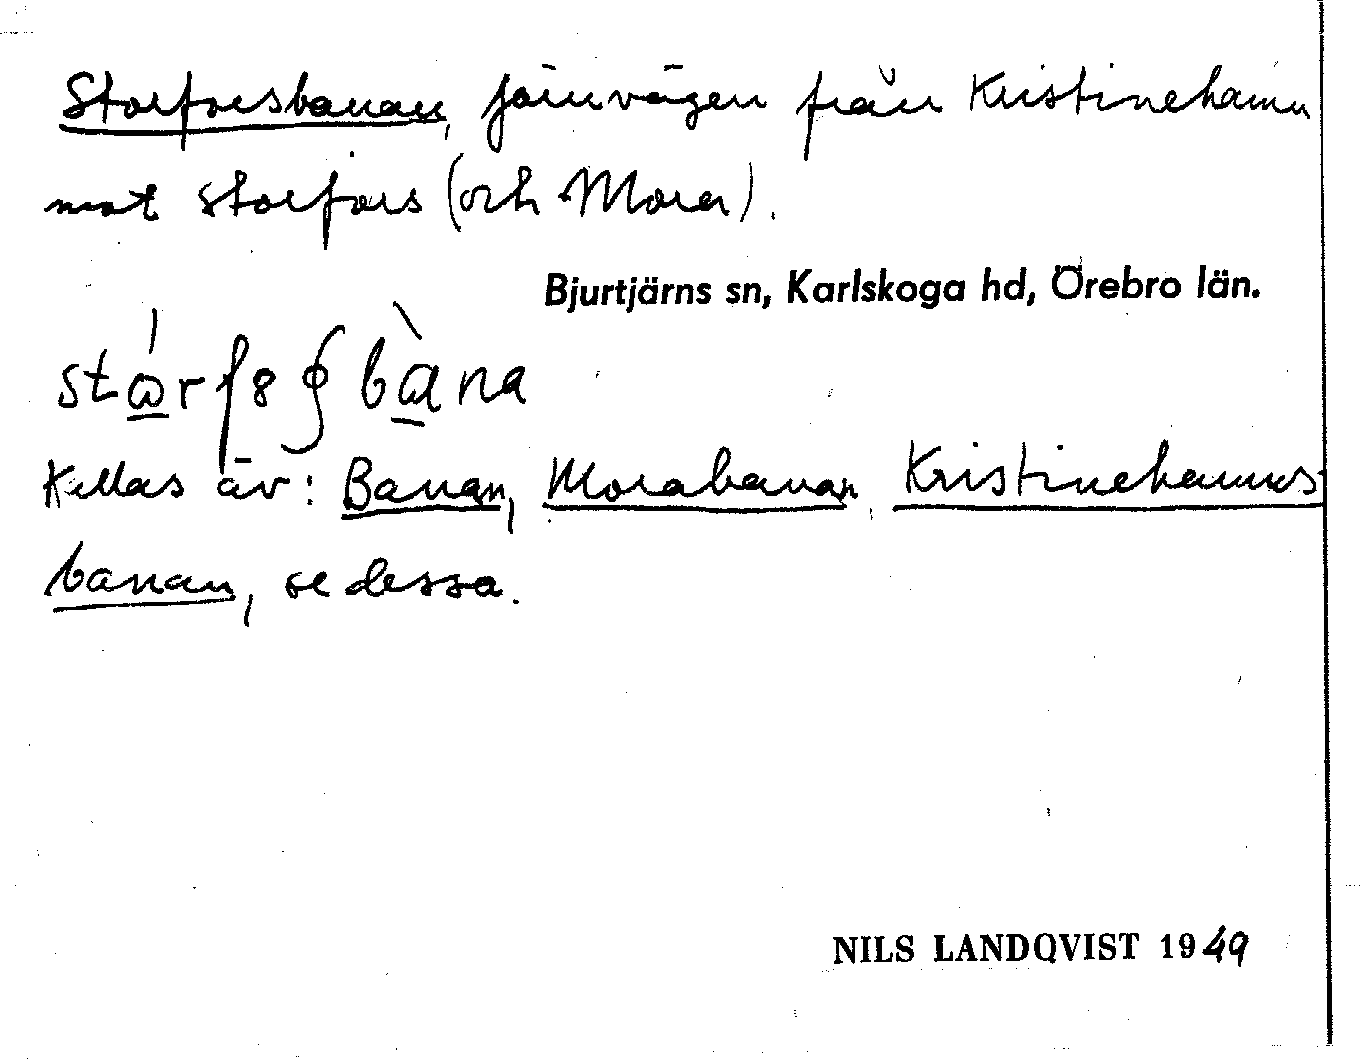 Storforsbanan, järnvägen från Kristinehamn
mot Storfors (och Mora).
Bjurtjärns sn, Karlskoga hd, Örebro län.
Kallas äv: Banan, Morabanan, Kristinehamns-
banan, se dessa.
NILS LANDQVIST 1949